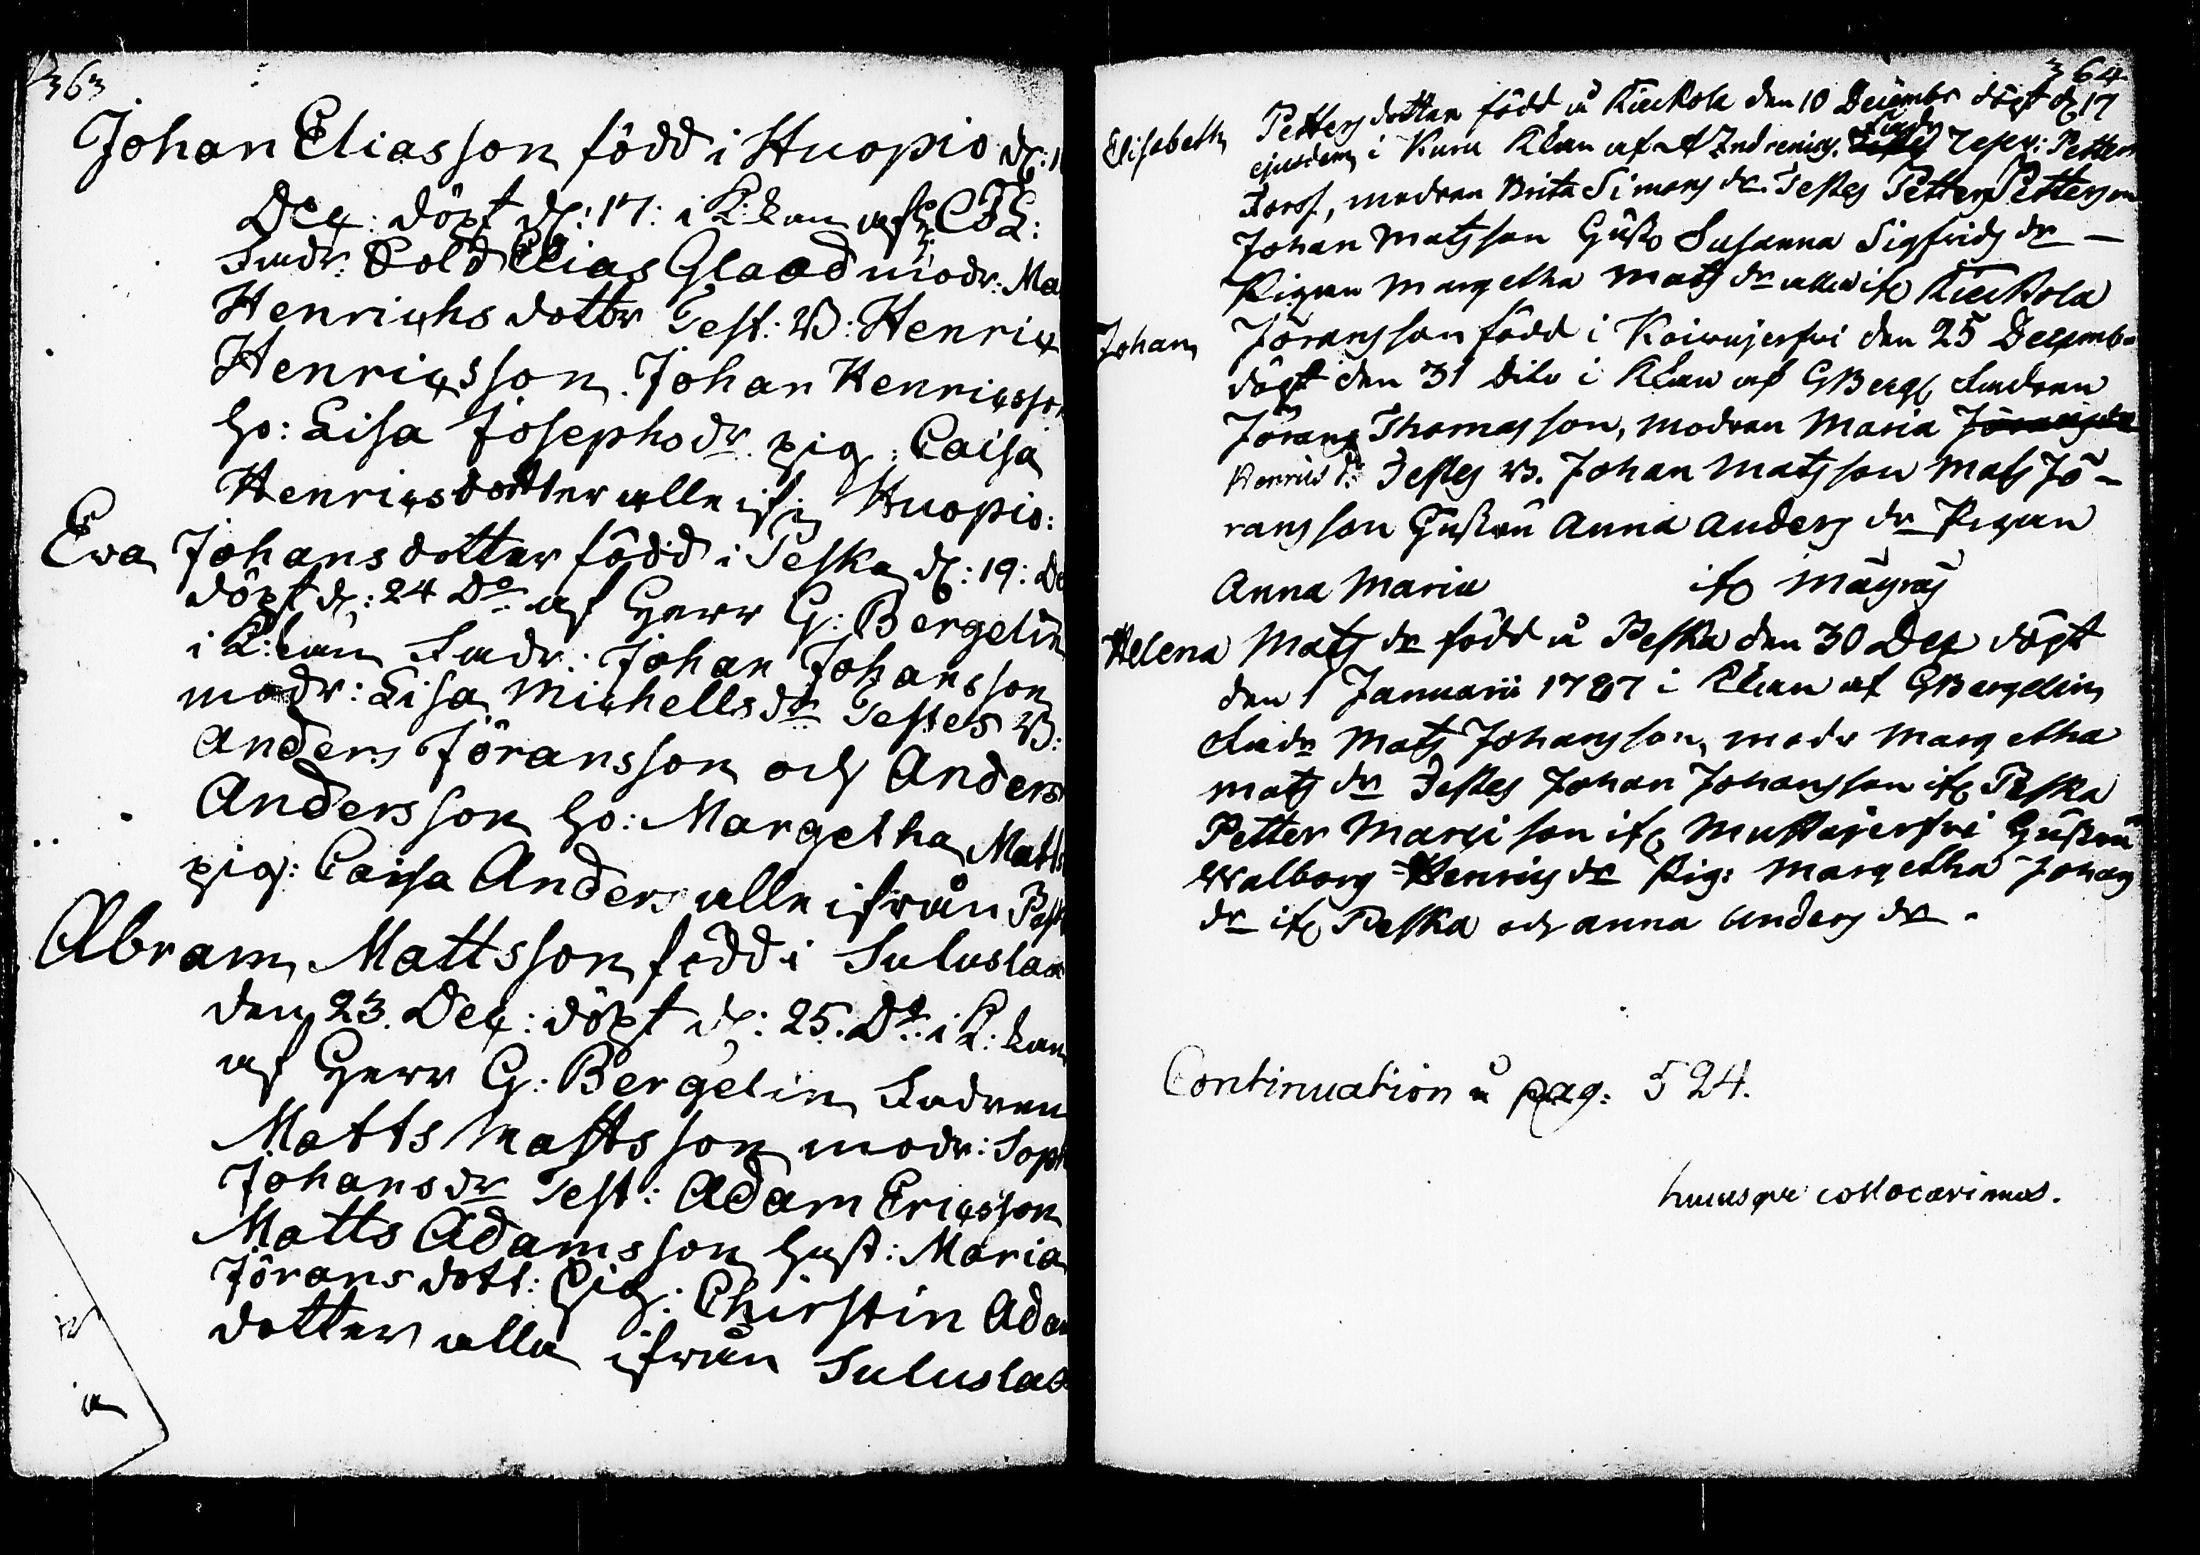 363
Johan Eliasson född i Kuopio d: 1
Dec: döpt d: 17: i K:kan af
Fadr: Sold Elias Glaad modr: Ma
Henrichs dottr Test: B: Henric
Henricsson Johan Henricsson
ho: Lisa Josephsdr pig: Caisa
Henricsdotter alle if: Kuopio:
Eva Johansdotter född i Peska d: 19: De
döpt d: 24 Do af Herr G: Bergelin
i K:kan Fadr: Johan Johansson
modr: Lisa Michellsdr Testes B:
Anders Jöransson och Anders
Andersson ho: Margetha Matts
pig: Caisa Anders alle ifrån Pesk
Abram Mattsson född i Suluslax
den 23. Dec: döpt d: 25. Do i K:kan
af Herr G: Bergelin Fadren
Matts Mattsson modr: Soph
Johansdr Test: Adam Ericsson
Matts Adamsson hust: Maria
Jörans dott: Pig: Chirstin Adam
dotter alla ifrån Suluslax
364
Elisabeth Petters dotter född å Kückola den 10 Decembr döpt d 17
ejusdem i Kuru Kkan af Fadr Petter
Josef, modren Brita Simons dr. Testes Petter Petterson
Johan Matsson Gust Susanna Sigfrids dr —
Pigan Margetha Mats dr alla ifr Kückola
Johan Jöransson född i Koivujerfvi den 25 Decembr
döpt den 31 dito i Kkan af GBergl fadren
Jörans Thomasson, modren Maria Jöransdr
Henrics dr Testes B. Johan Matsson Mats Jö-
ransson Gustru Anna Anders dr Pigan
Anna Maria ifr
Helena Mats dr född å Peska den 30 Dec döpt
den 1 Januarii 1787 i Kkan af GBergelin
Fadr Mats Johansson, modr Margetha
Mats dr Testes Johan Johansson ifr Peska
Petter Marcisson ifr Mustajerfvi Gustru
Walborg Henrics dr Pig: Margetha Johans
dr ifr Peska och Anna Anders dr.
Continuation å pag: 524.
hucusque collocavimus.